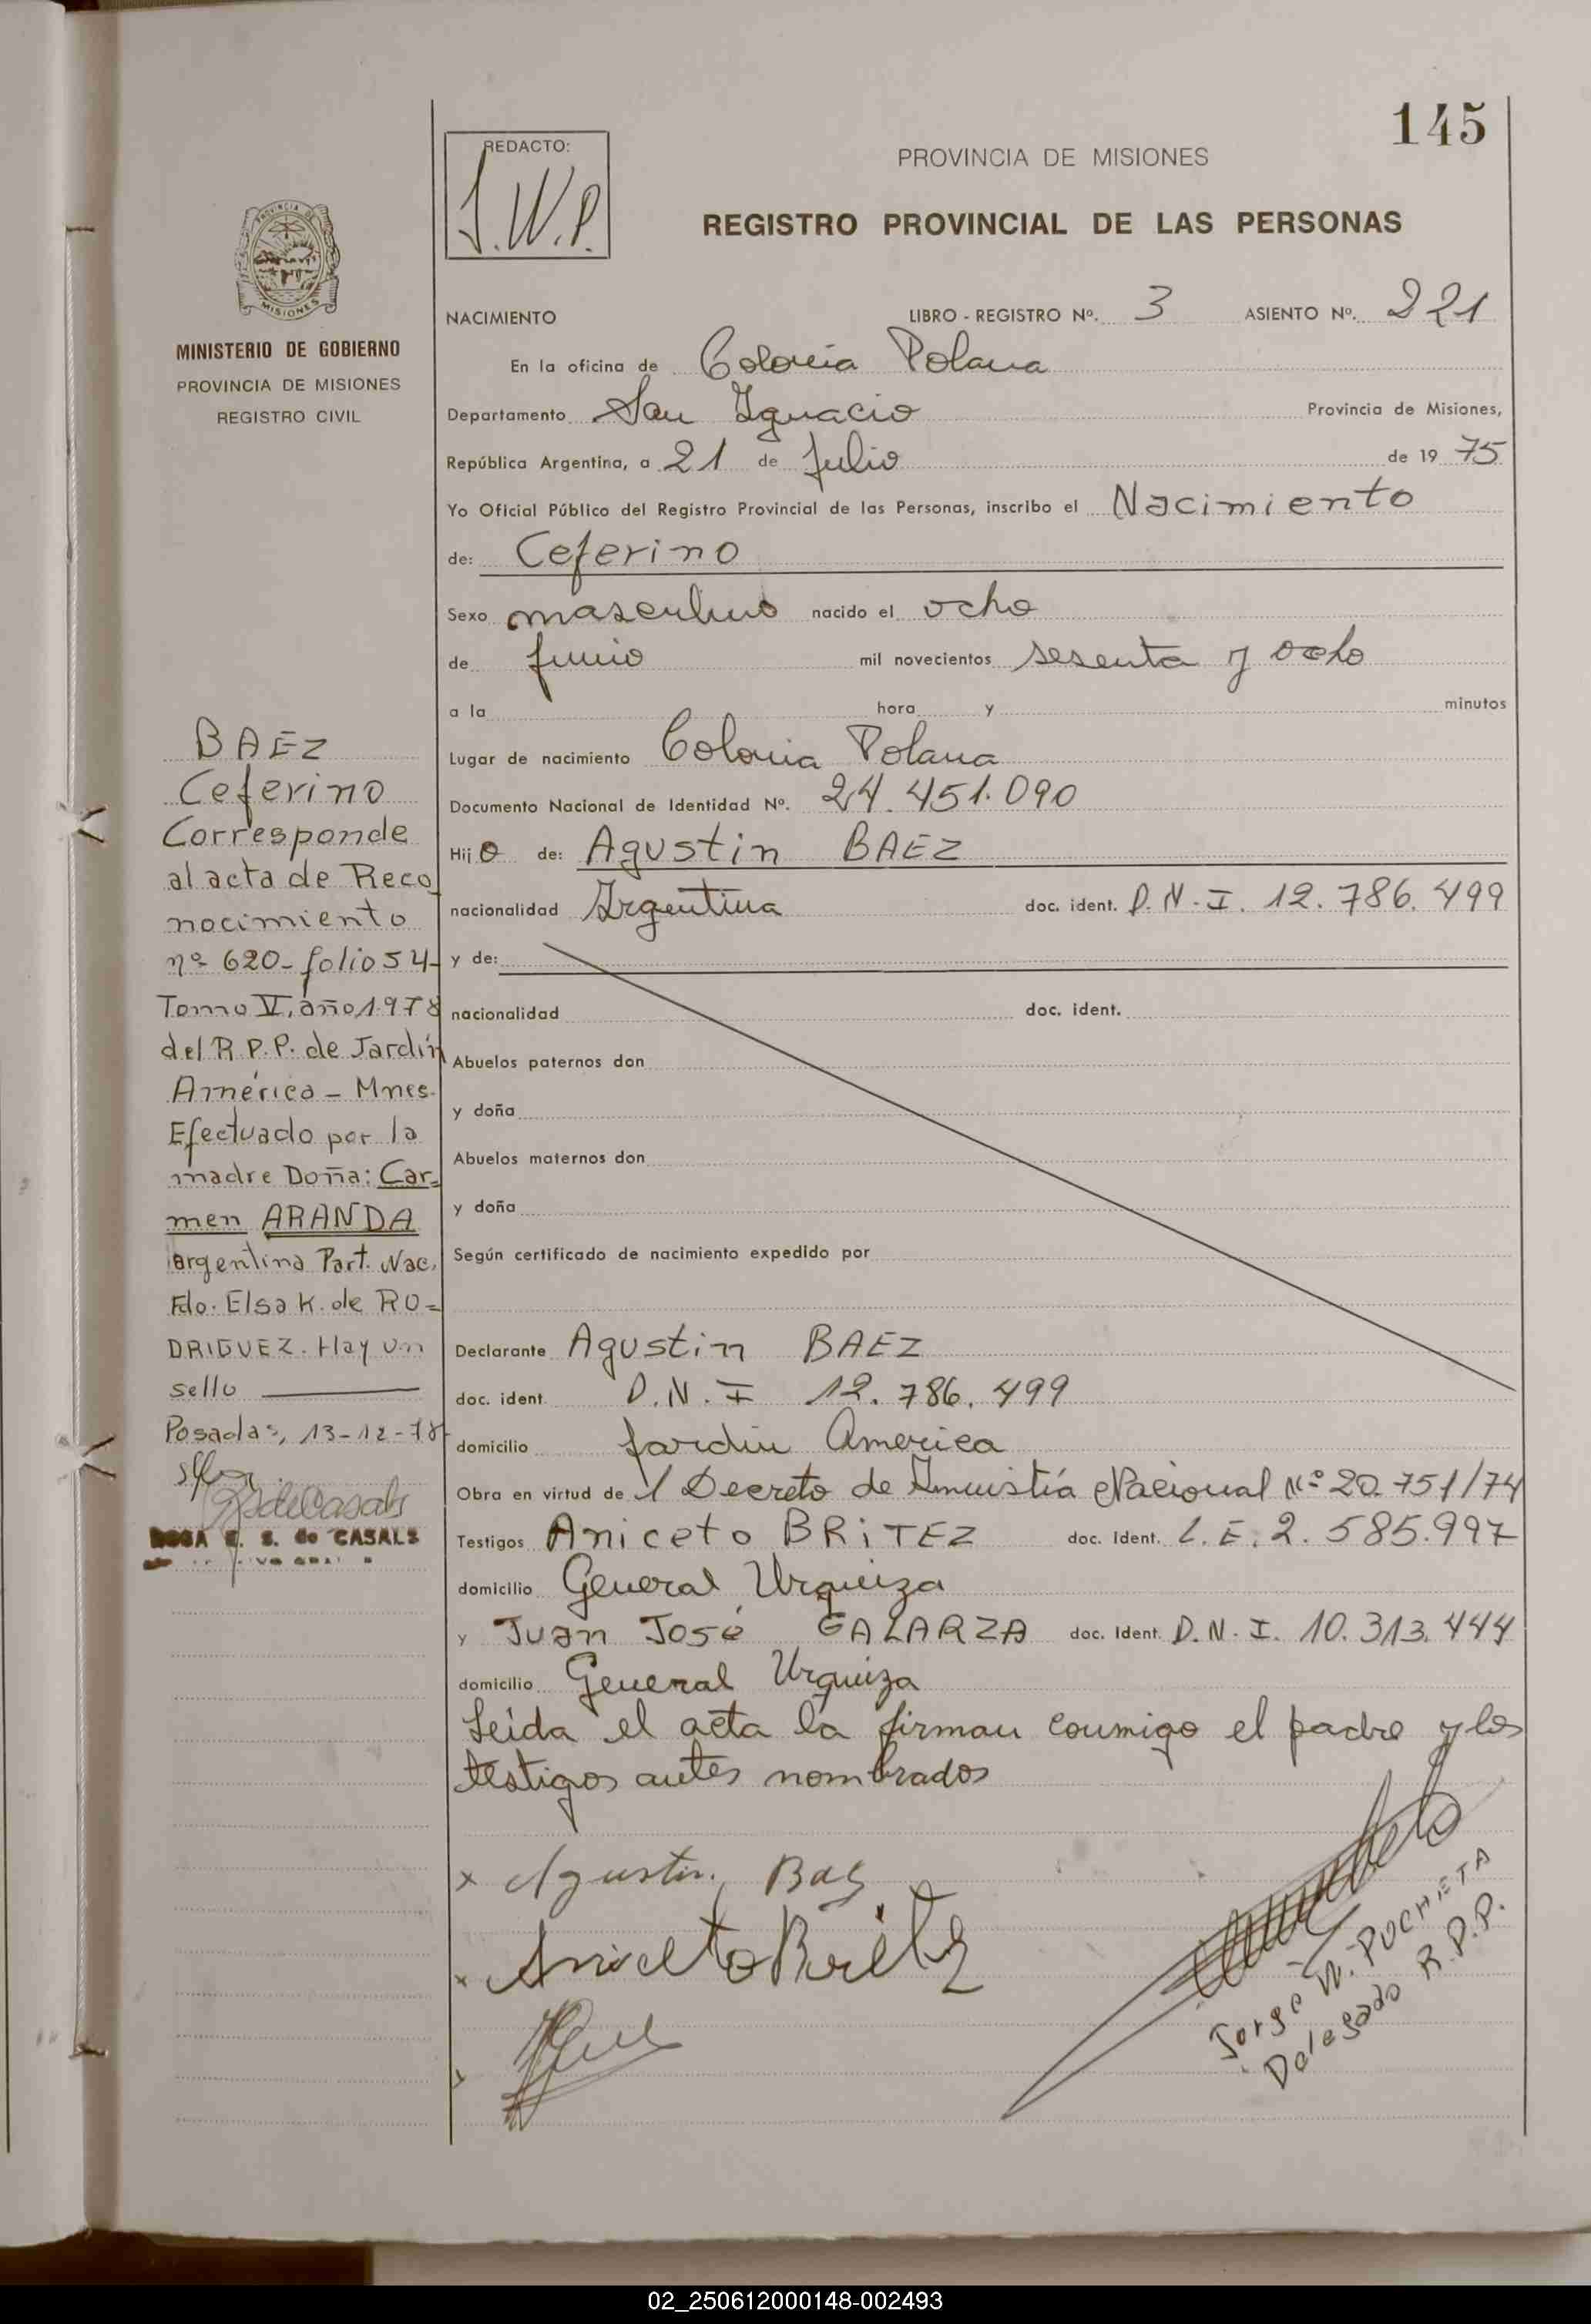 145
REDACTO:
J.W.P.
PROVINCIA DE MISIONES
REGISTRO PROVINCIAL DE LAS PERSONAS
PROVINCIA DE
MISIONES
MINISTERIO DE GOBIERNO
PROVINCIA DE MISIONES
REGISTRO CIVIL
NACIMIENTO LIBRO - REGISTRO Nº. 3 ASIENTO Nº. 221
En la oficina de Colonia Polana
Departamento San Ignacio Provincia de Misiones,
República Argentina, a 21 de Julio de 19 75
Yo Oficial Público del Registro Provincial de las Personas, inscribo el Nacimiento
de: Ceferino
Sexo masculino nacido el ocho
de junio mil novecientos sesenta y ocho
a la hora y minutos
Lugar de nacimiento Colonia Polana
Documento Nacional de Identidad Nº. 24.451.090
Hij o de: Agustin BAEZ
nacionalidad Argentina doc. ident. D.N.I. 12.786.499
y de:
nacionalidad doc. ident.
Abuelos paternos don
y doña
Abuelos maternos don
y doña
Según certificado de nacimiento expedido por
Declarante Agustin BAEZ
doc. ident. D.N.I 12.786.499
domicilio Jardin America
Obra en virtud de l Decreto de Amnistía Nacional Nº 20.751/74
Testigos Aniceto BRiTEZ doc. Ident. L.E. 2.585.997
domicilio General Urquiza
y Juan José GALARZA doc. Ident. D.N.I. 10.313.444
domicilio General Urquiza
Leida el acta la firman conmigo el padre y los
testigos antes nombrados
x Agustin Baez
x Aniceto Britez
Jorge W. PUCHETA
Delegado R.P.P.
BAEZ
Ceferino
Corresponde
al acta de Reco
nocimiento
nº 620-folio 54-
Tomo V, año 1978
del R.P.P. de Jardín
América - Mnes.
Efectuado por la
madre Doña: Car=
men ARANDA
argentina Part. Nac.
Fdo. Elsa K. de RO=
DRIGUEZ. Hay un
sello
Posadas, 13-12-78
ROSA E. S. de CASALS
02_250612000148-002493